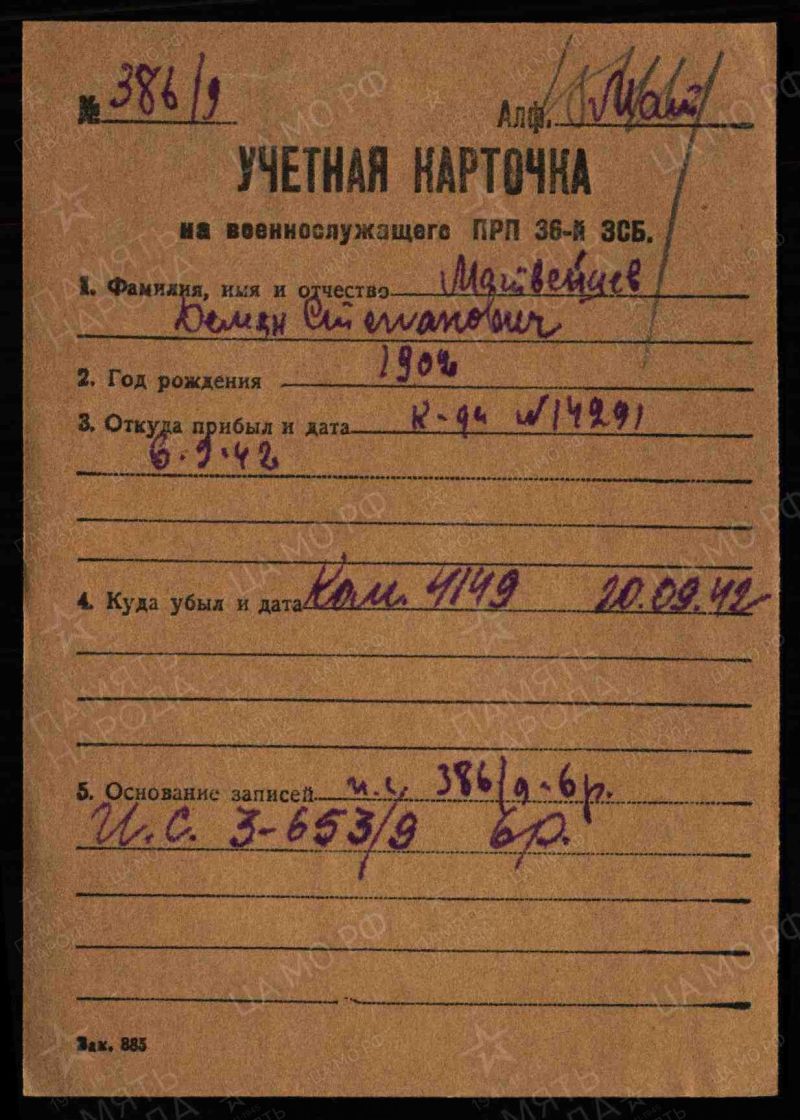 № 386/9 Алф. Мат
УЧЕТНАЯ КАРТОЧКА
на военнослужащего ПРП 36-й ЗСБ.
1. Фамилия, имя и отчество Матвейцев
Демян Степанович
2. Год рождения 1902
3. Откуда прибыл и дата к-да №14291
6.9.42
4. Куда убыл и дата Ком. 4149 20.09.42
5. Основание записей и.с. 386/9-бр.
И.С. 3-653/9 бр.
Зак. 885
ПАМЯТЬ НАРОДА
ЦАМО РФ